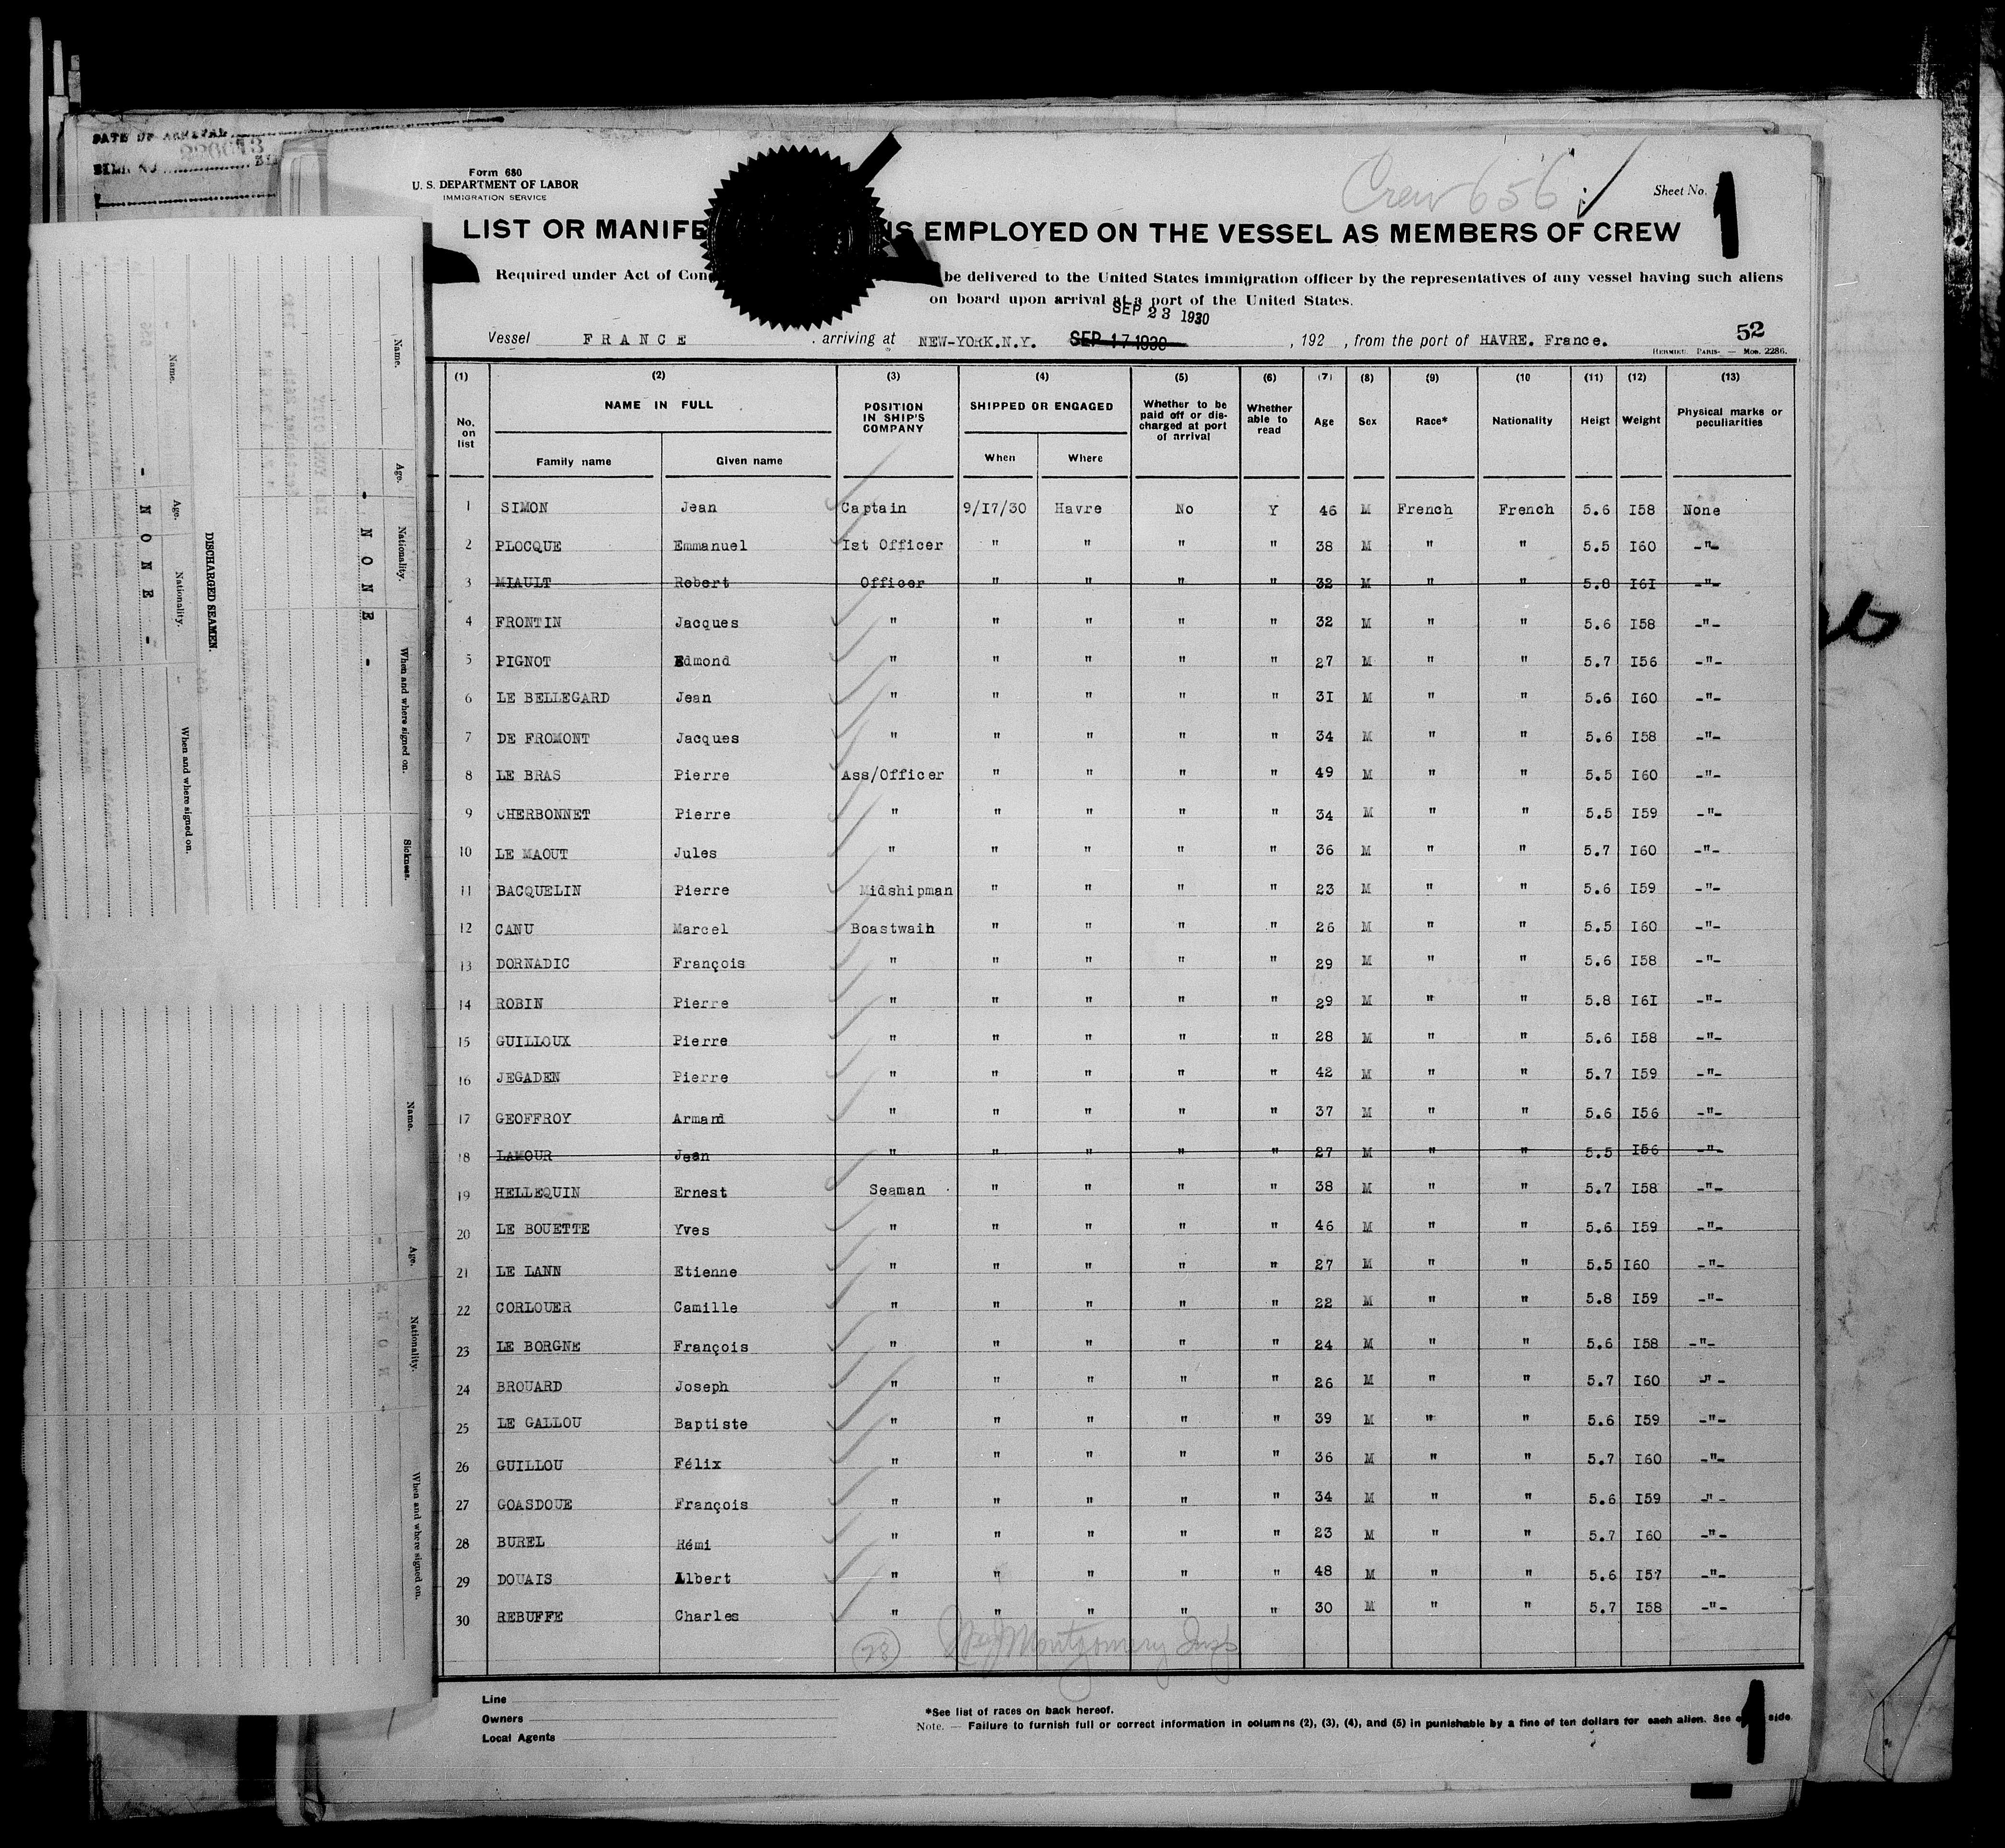 DATE OF ARRIVAL
Form 680
U. S. DEPARTMENT OF LABOR
IMMIGRATION SERVICE
Crew 656
Sheet No. 1
LIST OR MANIFE NS EMPLOYED ON THE VESSEL AS MEMBERS OF CREW
Required under Act of Con be delivered to the United States immigration officer by the representatives of any vessel having such aliens
on board upon arrival at a port of the United States.
SEP 23 1930
Vessel FRANCE , arriving at NEW-YORK.N.Y. SEP 17 1930 , 192 , from the port of HAVRE. France. 52
HERMIEU. PARIS. — Mod. 2286.
(1) (2) (3) (4) (5) (6) (7) (8) (9) (10 (11) (12) (13)
No. on list NAME IN FULL POSITION IN SHIP'S COMPANY SHIPPED OR ENGAGED Whether to be paid off or discharged at port of arrival Whether able to read Age Sex Race* Nationality Heigt Weight Physical marks or peculiarities
Family name Given name When Where
1 SIMON Jean Captain 9/17/30 Havre No Y 46 M French French 5.6 I58 None
2 PLOCQUE Emmanuel Ist Officer " " " " 38 M " " 5.5 I60 -"-
3 MIAULT Robert Officer " " " " 32 M " " 5.8 I6I -"-
4 FRONTIN Jacques " " " " " 32 M " " 5.6 I58 -"-
5 PIGNOT Edmond " " " " " 27 M " " 5.7 I56 -"-
6 LE BELLEGARD Jean " " " " " 3I M " " 5.6 I60 -"-
7 DE FROMONT Jacques " " " " " 34 M " " 5.6 I58 -"-
8 LE BRAS Pierre Ass/Officer " " " " 49 M " " 5.5 I60 -"-
9 CHERBONNET Pierre " " " " " 34 M " " 5.5 I59 -"-
10 LE MAOUT Jules " " " " " 36 M " " 5.7 I60 -"-
11 BACQUELIN Pierre Midshipman " " " " 23 M " " 5.6 I59 -"-
12 CANU Marcel Boastwain " " " " 26 M " " 5.5 I60 -"-
13 DORNADIC François " " " " " 29 M " " 5.6 I58 -"-
14 ROBIN Pierre " " " " " 29 M " " 5.8 I6I -"-
15 GUILLOUX Pierre " " " " " 28 M " " 5.6 I58 -"-
16 JEGADEN Pierre " " " " " 42 M " " 5.7 I59 -"-
17 GEOFFROY Armand " " " " " 37 M " " 5.6 I56 -"-
18 LAMOUR Jean " " " " " 27 M " " 5.5 I56 -"-
19 HELLEQUIN Ernest Seaman " " " " 38 M " " 5.7 I58 -"-
20 LE BOUETTE Yves " " " " " 46 M " " 5.6 I59 -"-
21 LE LANN Etienne " " " " " 27 M " " 5.5 I60 -"-
22 CORLOUER Camille " " " " " 22 M " " 5.8 I59 -"-
23 LE BORGNE François " " " " " 24 M " " 5.6 I58 -"-
24 BROUARD Joseph " " " " " 26 M " " 5.7 I60 -"-
25 LE GALLOU Baptiste " " " " " 39 M " " 5.6 I59 -"-
26 GUILLOU Félix " " " " " 36 M " " 5.7 I60 -"-
27 GOASDOUE François " " " " " 34 M " " 5.6 I59 -"-
28 BUREL Rémi " " " " " 23 M " " 5.7 I60 -"-
29 DOUAIS Albert " " " " " 48 M " " 5.6 I57 -"-
30 REBUFFE Charles " " " " " 30 M " " 5.7 I58 -"-
28 Montgomery Insp
Line
Owners
Local Agents
*See list of races on back hereof.
Note. — Failure to furnish full or correct information in columns (2), (3), (4), and (5) in punishable by a fine of ten dollars for each alien. See side.
1
Name. Age. Nationality. When and where signed on. Sickness.
- NONE -
DISCHARGED SEAMEN.
Name. Age. Nationality. When and where signed on.
- NONE -
Name. Age. Nationality. When and where signed on.